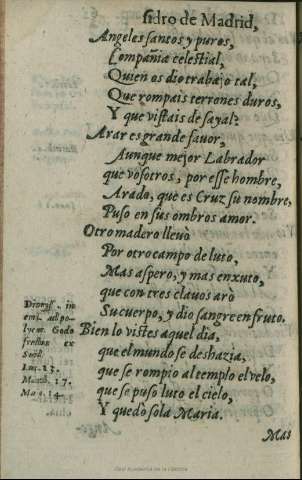 Isidro de Madrid,
Angeles santos y puros,
Compañia celestial,
Quien os dio trabajo tal,
Que rompais terrones duros,
Y que vistais de sayal?
Arar es grande fauor,
Aunque mejor Labrador
que vosotros, por esse hombre,
Arado, que es Cruz su nombre,
Puso en sus ombros amor.
Otro madero lleuò
Por otro campo de luto,
Mas aspero, y mas enxuto,
que con tres clauos arò
Su cuerpo, y dio sangre en fruto.
Bien lo vistes aquel dia,
que el mundo se deshazia,
que se rompio al templo el velo,
que se puso luto el cielo,
Y quedò sola Maria.
Mas
Dionys. in
epi. ad po-
lycar. Godo
fredus ex
Luc. 23.
Matth. 17.
Mar. 14.
Real Academia de la Historia